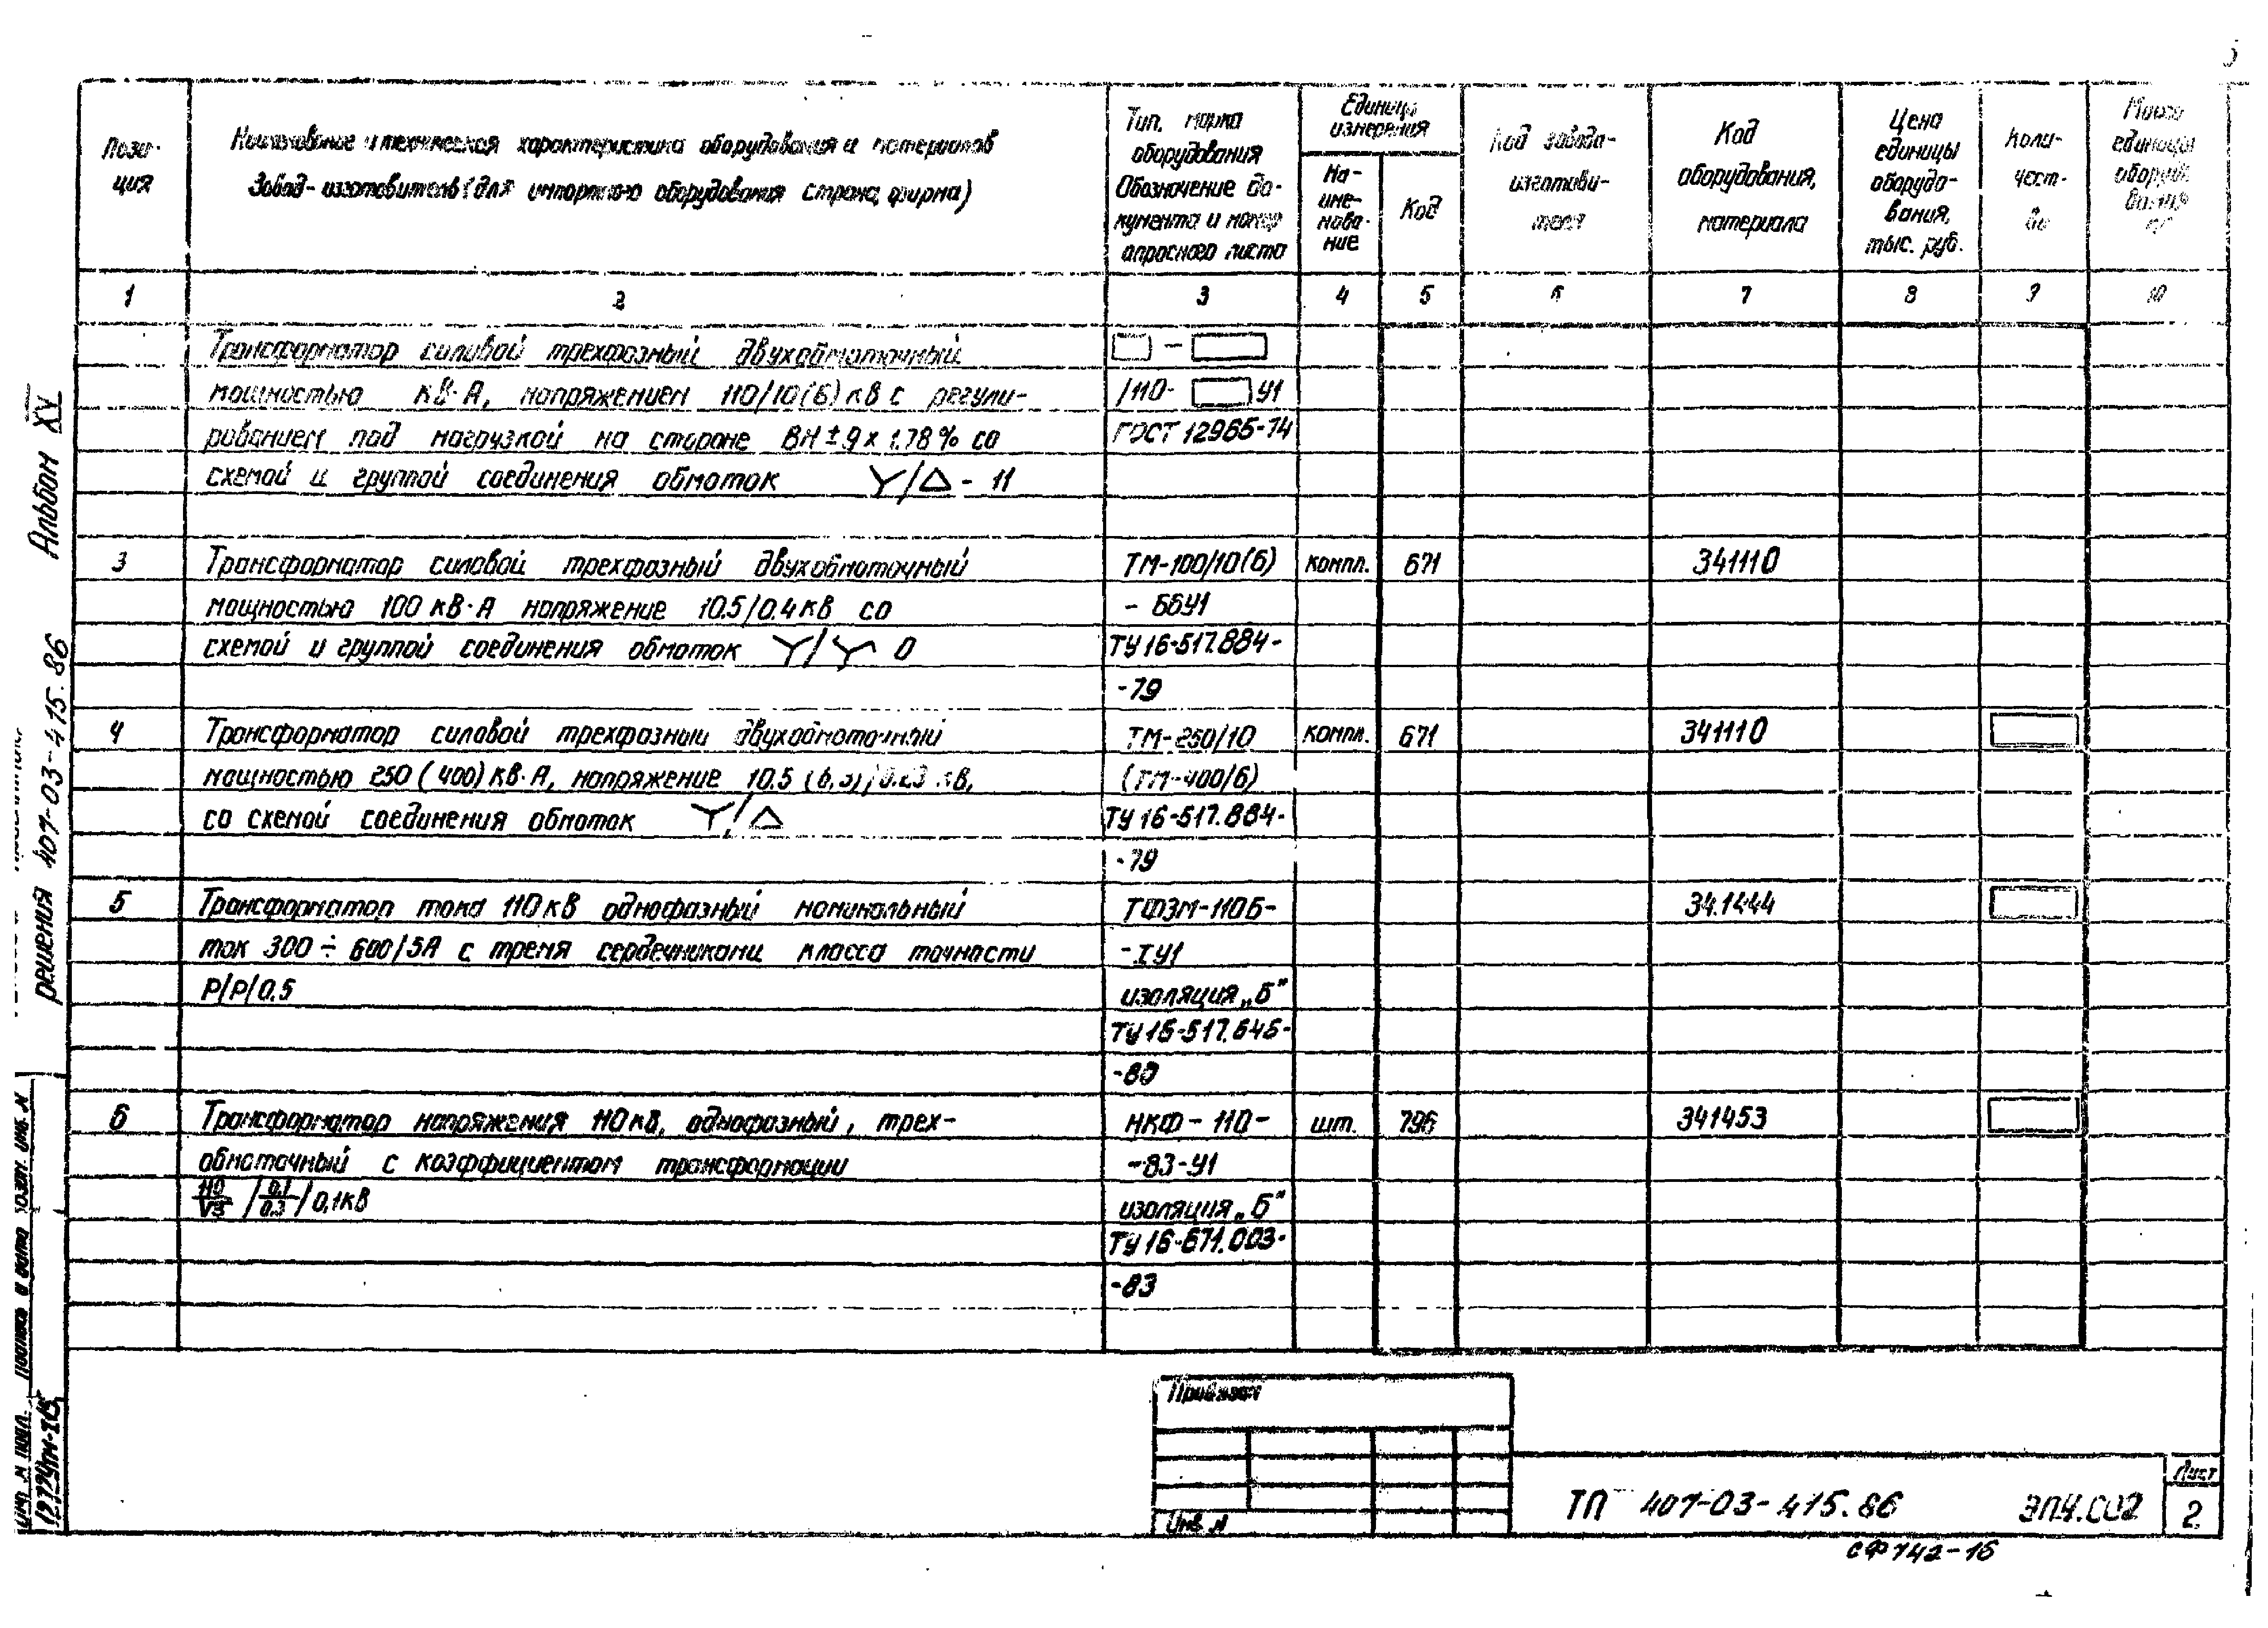 5
Пози-
ция
Наименование и техническая характеристика оборудования и материалов
Завод-изготовитель (для импортного оборудования страна, фирма)
Тип, марка
оборудования
Обозначение до-
кумента и номер
опросного листа
Единица
измерения
На-
име-
нова-
ние
Код
Код завода-
изготови-
теля
Код
оборудования,
материала
Цена
единицы
оборудо-
вания,
тыс. руб.
Коли-
чест-
во
Масса
единицы
оборудо-
вания
кг
1 2 3 4 5 6 7 8 9 10
Трансформатор силовой трехфазный двухобмоточный —
мощностью кВ·А, напряжением 110/10(6) кВ с регули- /110- У1
рованием под нагрузкой на стороне ВН ± 9 х 1.78% со ГОСТ 12965-74
схемой и группой соединения обмоток Y/Δ - 11
3 Трансформатор силовой трехфазный двухобмоточный ТМ-100/10(6) компл. 671 341110
мощностью 100 кВ·А напряжение 10.5/0.4 кВ со - 66У1
схемой и группой соединения обмоток Y/Y 0 ТУ 16-517.884-
-79
4 Трансформатор силовой трехфазный двухобмоточный ТМ-250/10 компл. 671 341110
мощностью 250 (400) кВ·А, напряжение 10.5 (6,3)/0.23 кВ, (ТМ-400/6)
со схемой соединения обмоток Y/Δ ТУ 16-517.884-
-79
5 Трансформатор тока 110 кВ однофазный номинальный ТФЗМ-110Б- 34.1444
ток 300 ÷ 600/5А с тремя сердечниками класса точности -IУ1
Р/Р/0.5 изоляция „Б"
ТУ 16-517.646-
-80
6 Трансформатор напряжения 110 кВ, однофазный, трех- НКФ-110- шт. 796 341453
обмоточный с коэффициентом трансформации -83-У1
110/√3 / 0.1/0.3 / 0,1кВ изоляция „Б"
ТУ 16-671.003-
-83
Привязан
Инв. N
ТП 407-03-415.86 ЭП4.СО2
Лист
2
СФ 742-16
Альбом XV
решения 407-03-415.86
Инв. N подл.
Подпись и дата
Взам. инв. N
12794тм-т15